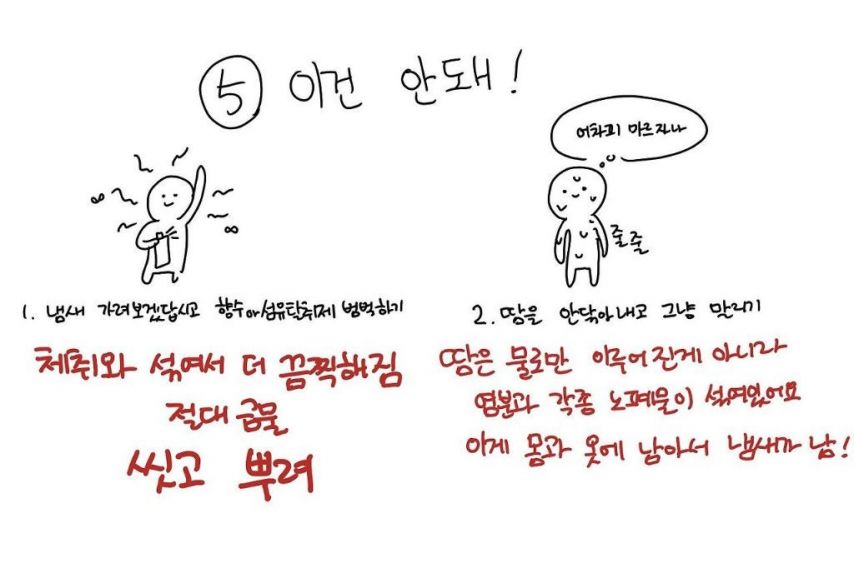 ⑤ 이건 안돼!
어차피 마르자나
줄줄
1. 냄새 가려보겠답시고 향수or섬유탈취제 범벅하기
체취와 섞여서 더 끔찍해짐
절대 금물
씻고 뿌려
2. 땀을 안닦아내고 그냥 말리기
땀은 물로만 이루어진게 아니라
염분과 각종 노폐물이 섞여있어요
이게 몸과 옷에 남아서 냄새가 남!